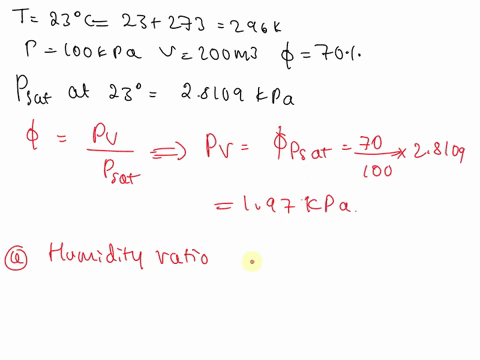 T= 23°C= 23+273 = 296k
P = 100kPa V = 200m3 ϕ = 70%.
Psat at 23° = 2.8109 kPa
ϕ = PV/Psat ⟹ PV = ϕPsat = 70/100 × 2.8109
= 1.97 KPa.
ⓐ Humidity ratio